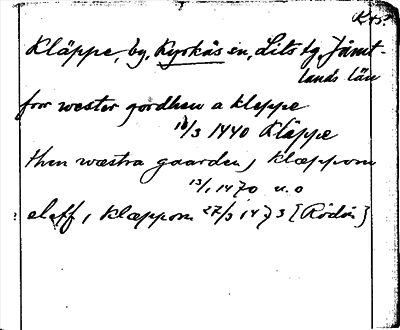 Kläppe, by, Kyrkås sn, Lits tg, Jämt-
lands län
for wester gordhen a kleppe
18/3 1440 Kläppe
then wæstra gaarden j Klæppom
13/1 1470 n. o
eleff j Klæppom 27/3 1473 [Rödön]